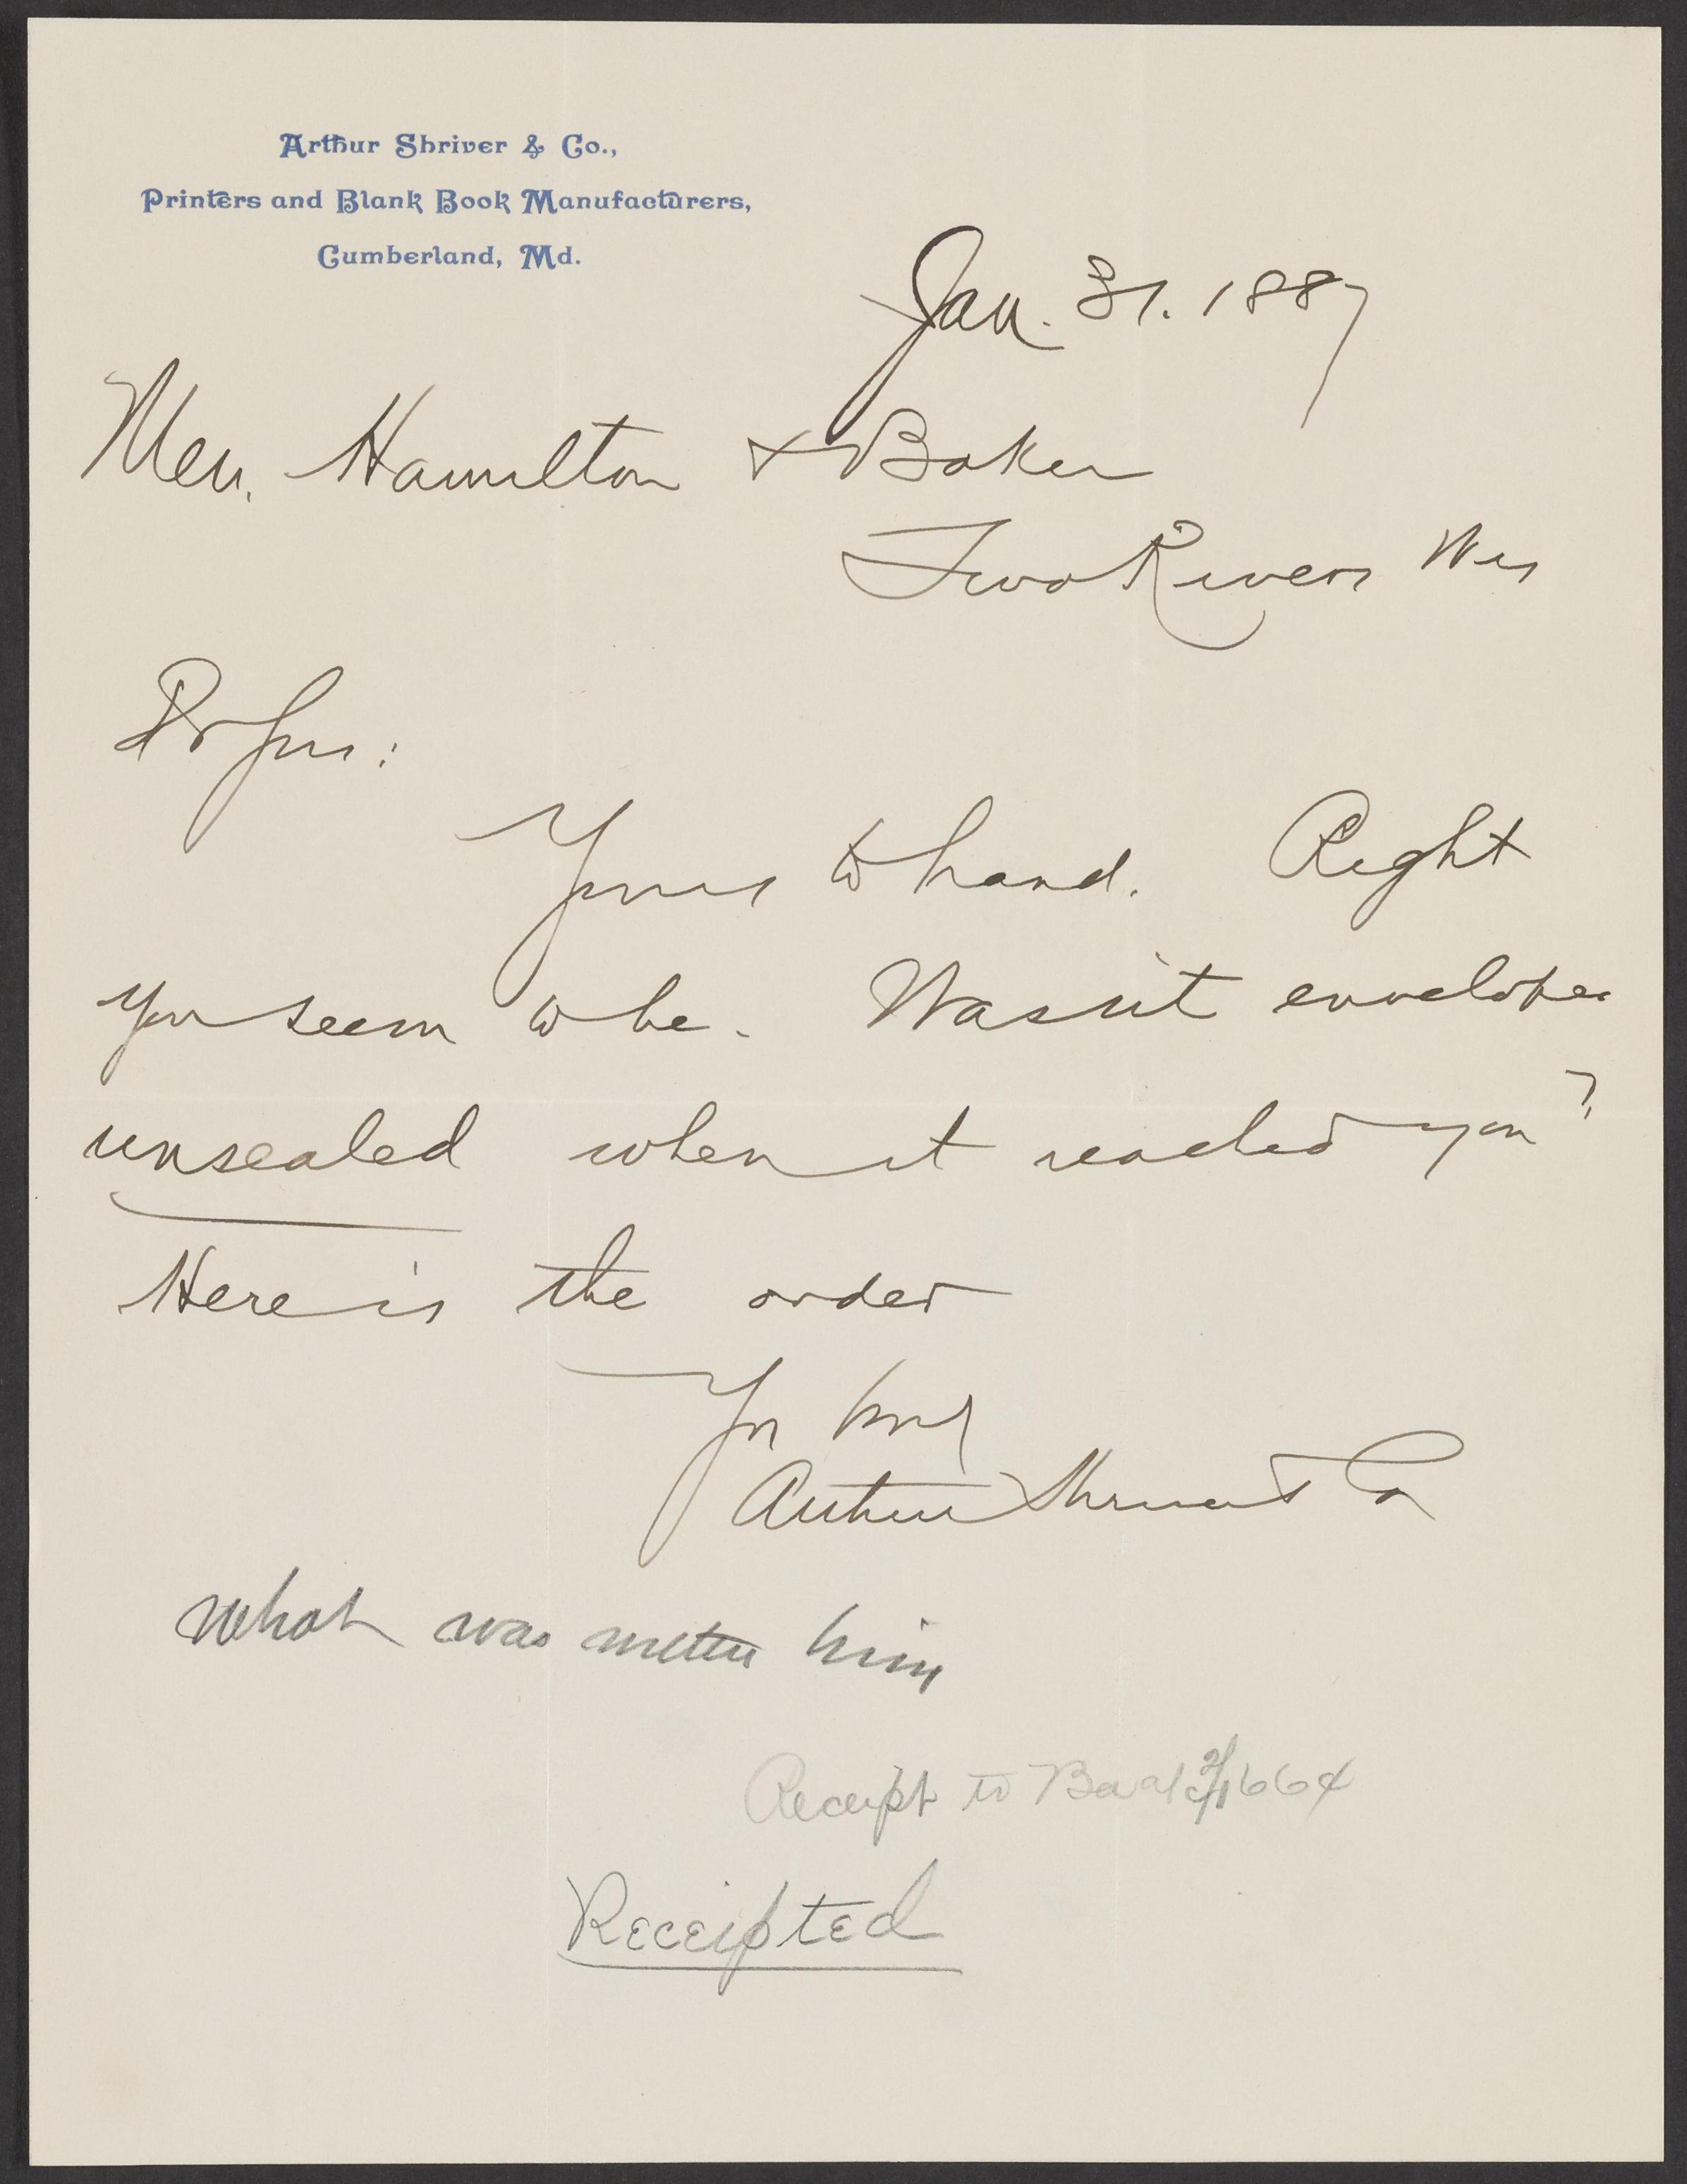 Arthur Shriver & Co.,
Printers and Blank Book Manufacturers,
Cumberland, Md.
Jan. 31. 1887
Mess. Hamilton & Baker
Two Rivers Wis
Dr Sirs:
Yours to hand. Right
you seem to be. Wasn't envelope
unsealed when it reached you?
Here is the order
Yrs truly
Arthur Shriver & Co
What was written him
Receipt to Baral 2/1 664
Receipted